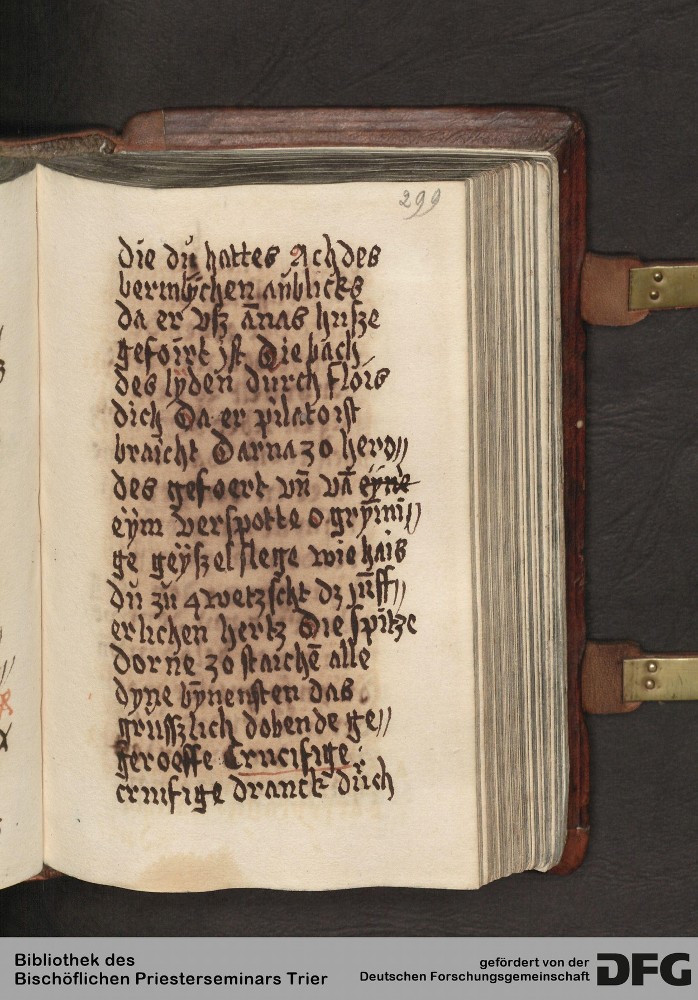 299
die dů hattes Ach des
bermlÿchen anblicks
da er vsz ān̄as husze
gefoirt jst Die bach
des lÿden durch flois
dich Da er pilato ist
braicht Darna zo hero//
des gefoert vn̄ vā eÿne
eÿm verspotte o grÿm̄i//
ge geÿszel slege wie hais
dů zů qwetzscht dz jūff//
erlichen hertz Die spitze
dorne zo staichē alle
dyne bÿnensten das
grüsszlich dobende ge//
geroeffe Crucifige
crucifige dranck důrch
Bibliothek des
Bischöflichen Priesterseminars Trier
gefördert von der
Deutschen Forschungsgemeinschaft
DFG